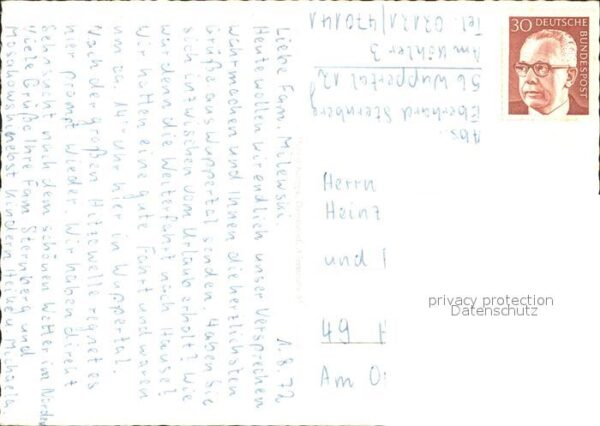 1.8.72
Liebe Fam. Milewski
Heute wollen wir endlich unser Versprechen
wahrmachen und Ihnen die herzlichsten
Grüße aus Wuppertal senden. Haben Sie
sich inzwischen vom Urlaub erholt? Wie
wurde die Weiterfahrt nach Hause?
Wir hatten eine gute Fahrt und waren
um ca 14°° Uhr hier in Wuppertal.
Nach der großen Hitzewelle regnet es
hier prompt wieder. Wir haben direkt
Sehnsucht nach dem schönen Wetter im Norden
Viele Grüße Ihre Fam Sternberg und
nebst Kindern Heiku Michaela
Abs.
Eberhard Sternberg
56 Wuppertal 12
Am Köhler 3
Tel. 02121/470141
30 DEUTSCHE BUNDESPOST
Herrn
Heinz
und
49 H
Am O
privacy protection
Datenschutz